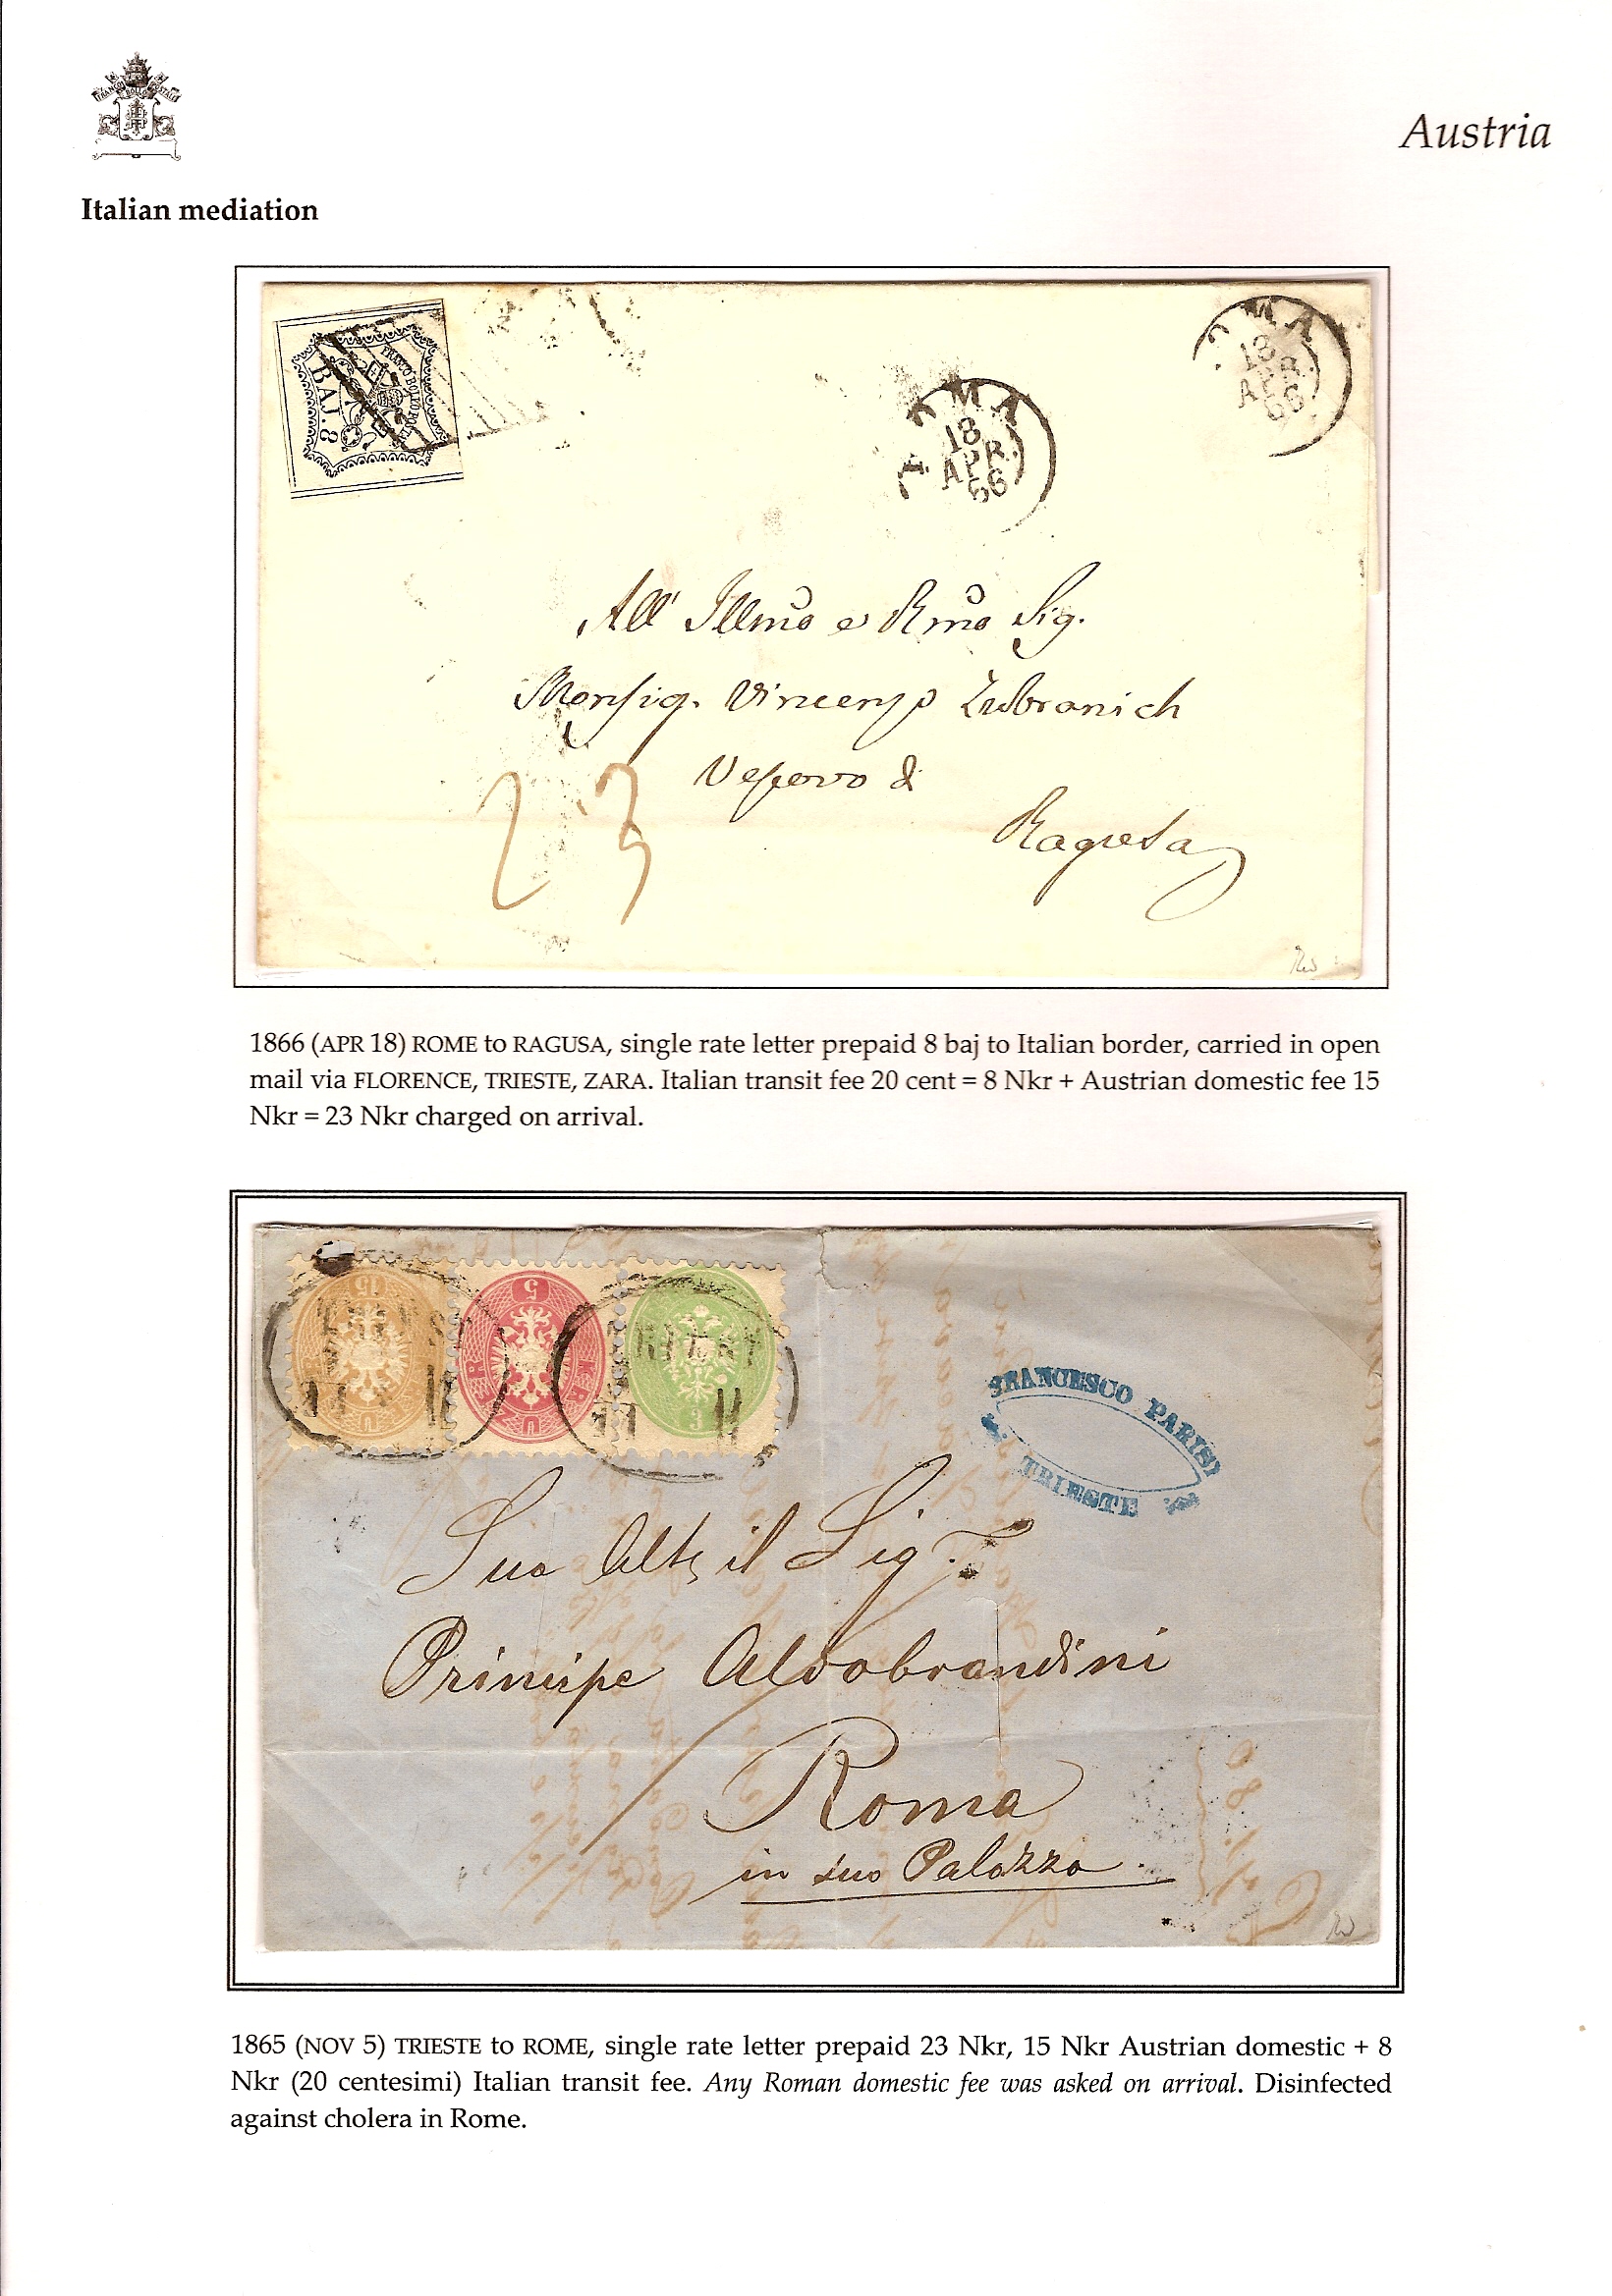 FRANCO BOLLO POSTALE
Austria
Italian mediation
FRANCO BOLLO POSTALE
BAJ. 8
ROMA
18
APR.
66
ROMA
18
APR.
66
All' Illmo e Rmo Sig.
Monsig. Vincenzo Zubranich
Vescovo di
Ragusa
23
1866 (APR 18) ROME to RAGUSA, single rate letter prepaid 8 baj to Italian border, carried in open
mail via FLORENCE, TRIESTE, ZARA. Italian transit fee 20 cent = 8 Nkr + Austrian domestic fee 15
Nkr = 23 Nkr charged on arrival.
15
5
3
TRIEST
FRANCESCO PARISI
TRIESTE
Sua Altz il Sig.r
Principe Aldobrandini
Roma
in suo Palazzo.
1865 (NOV 5) TRIESTE to ROME, single rate letter prepaid 23 Nkr, 15 Nkr Austrian domestic + 8
Nkr (20 centesimi) Italian transit fee. Any Roman domestic fee was asked on arrival. Disinfected
against cholera in Rome.